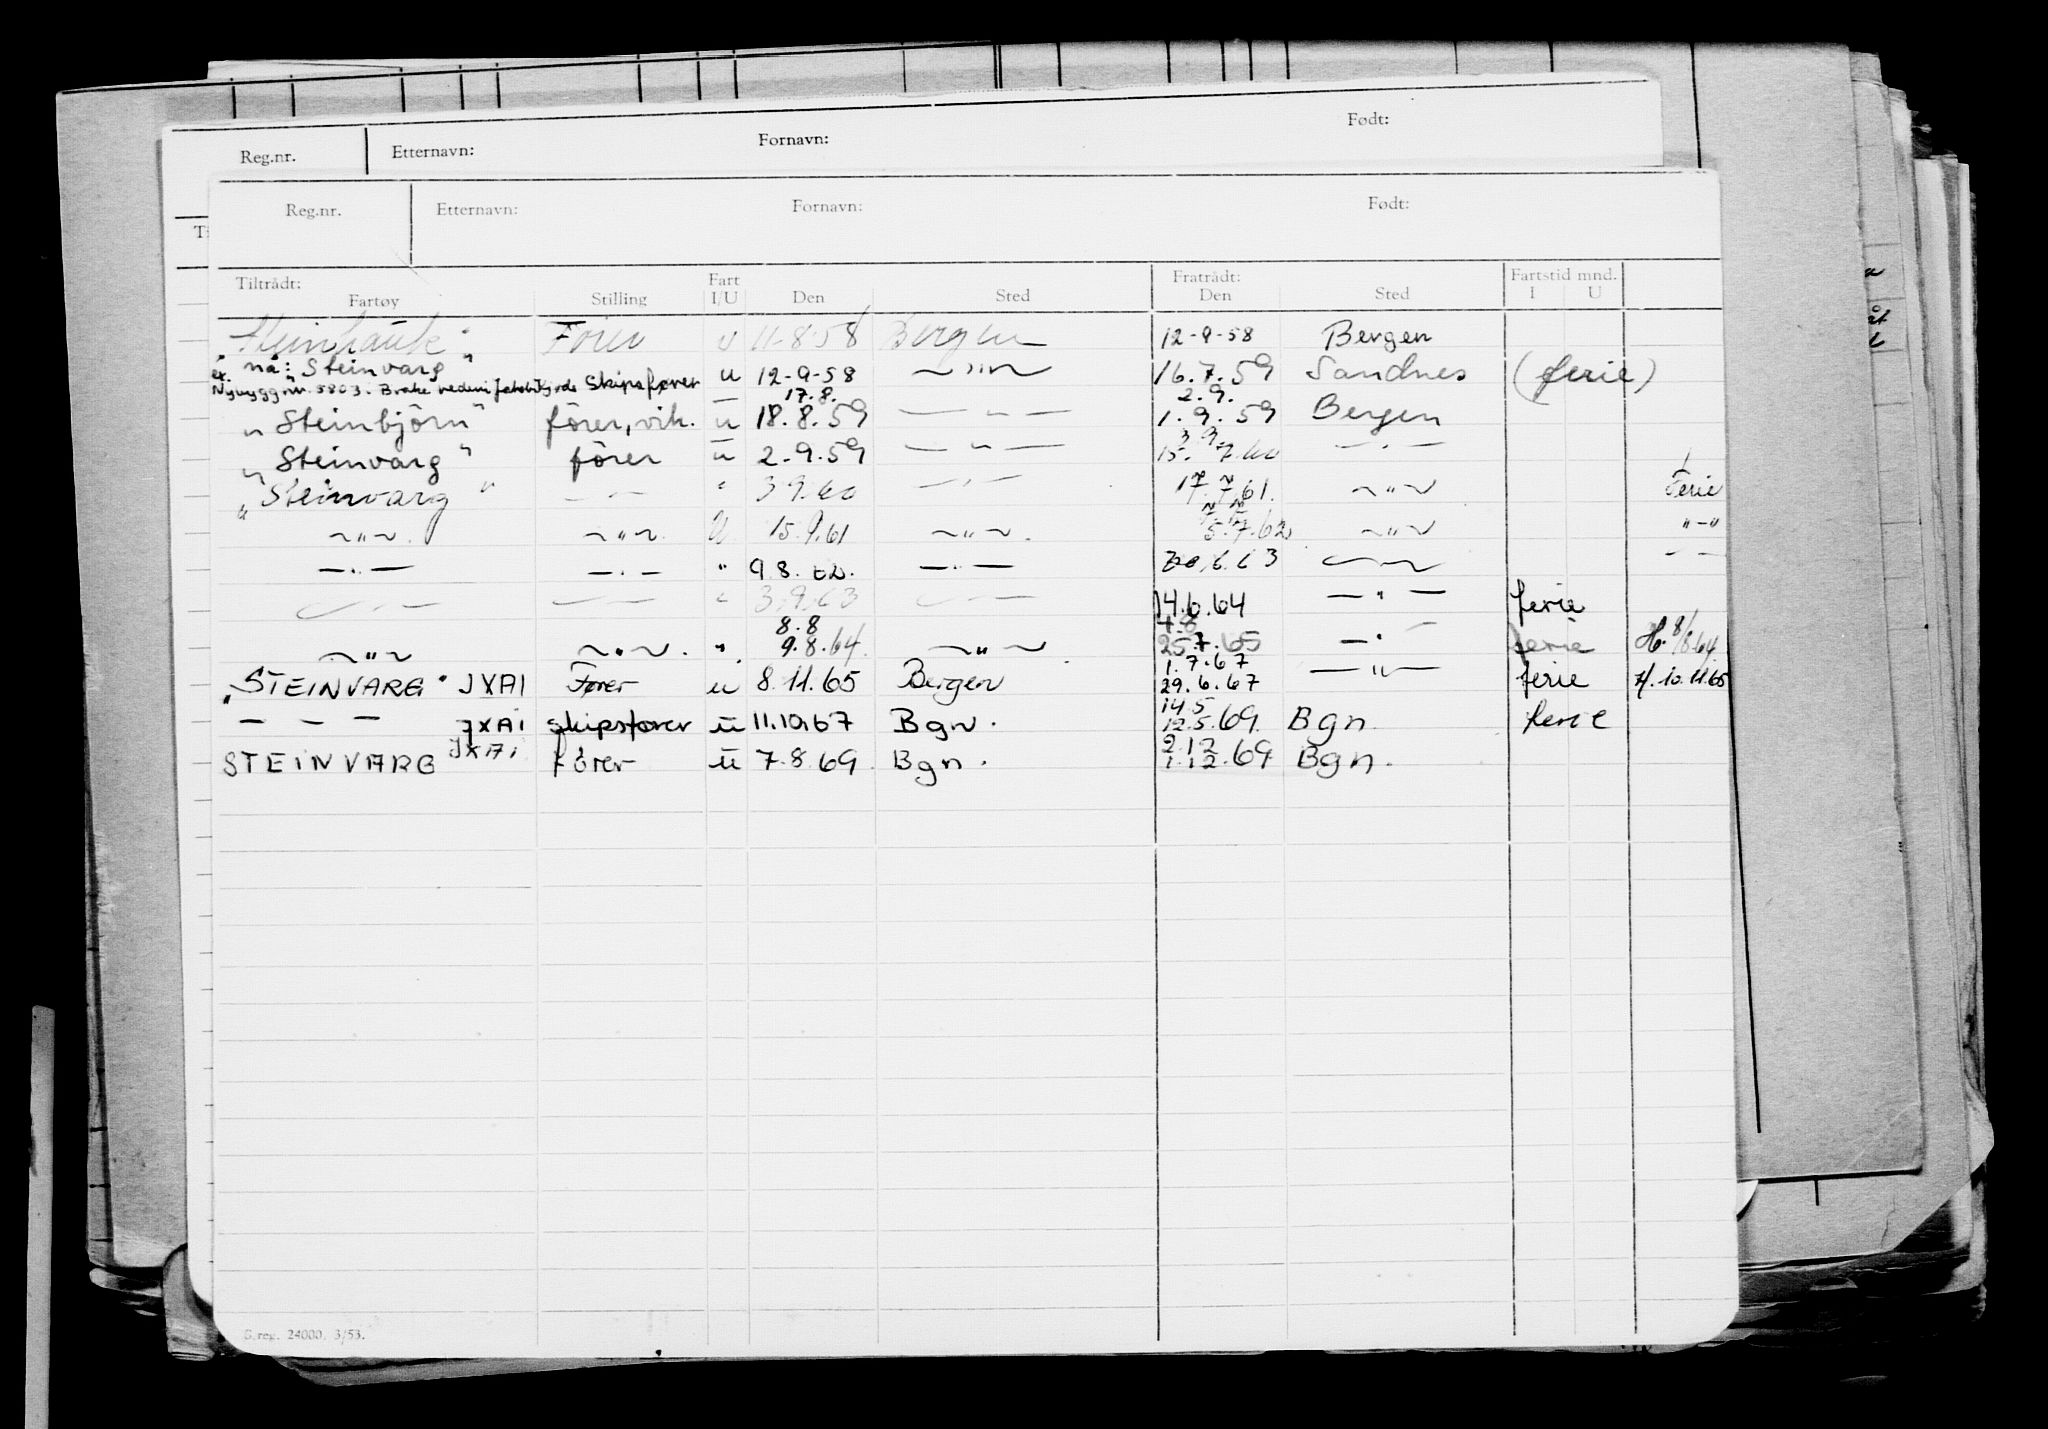 Reg.nr. Etternavn: Fornavn: Født:
Reg.nr. Etternavn: Fornavn: Født:
Tiltrådt: Fartøy Stilling Fart I/U Den Sted Fratrådt: Den Sted Fartstid mnd. I U
"Steinhauk" Fører u 11-8-58 Bergen 12-9-58 Bergen
nå: "Steinvarg"
ex. Nybygg nr. 5803. Skipsfører u 12-9-58 ~"~ 16.7.59 Sandnes (ferie)
"Steinbjörn" förer, vik. u 17.8. 18.8.59 — " — 2.9. 1.9.59 Bergen
"Steinvarg" förer u 2-9-59 — " — 3.9. 15.7.60 — " —
"Steinvarg" — " — " 3.9.60 — " — 17.7.61. ~"~ Ferie
~"~. ~"~. U 15.9.61 ~"~. 5.7.62 ~"~ "-"
— " — — " — " 9.8.62. — " — 20.6.63 — " — — " —
— " — — " — " 3.9.63 — " — 14.6.64 — " — ferie
~"~ ~"~. " 8.8 9.8.64. ~"~ 4.8 25.7.65 — " — ferie H. 8/8 64
"STEINVARG" JXAI Fører u 8.11.65 Bergen 1.7.67 29.6.67 — " — ferie H. 10.11.65
— — — JXAI skipsfører u 11.10.67 Bgn. 14.5 12.5.69. Bgn. ferie
STEINVARG JXAI förer u 7.8.69. Bgn. 2.12 1.12.69 Bgn.
S.reg. 24000. 3/53.